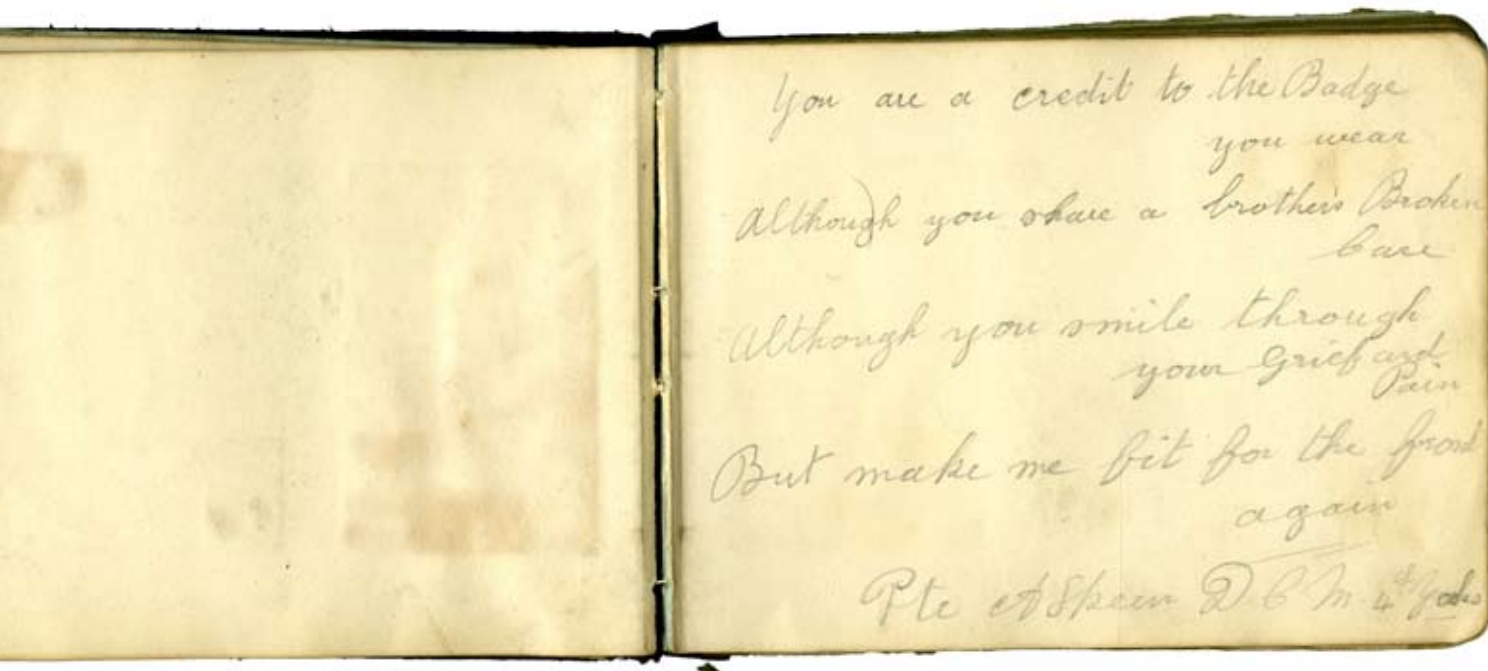 You are a credit to the Badge
you wear
Although you share a brother's Broken
Care
Although you smile through
your Grief and
Pain
But make me fit for the front
again
Pte A Skeen D.C.M. 4th Yorks